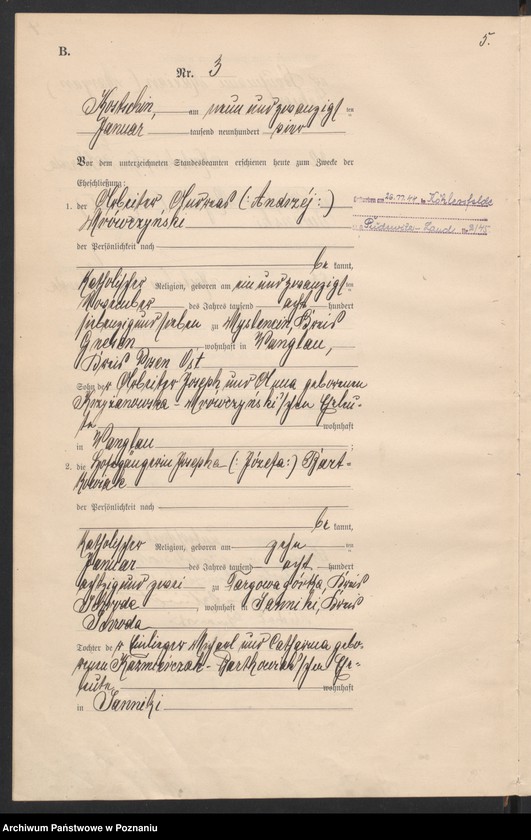 5.
B.
Nr. 3
Kostschin, am neun und zwanzigsten
Januar tausend neunhundert vier
Vor dem unterzeichneten Standesbeamten erschienen heute zum Zwecke der
Eheschließung:
1. der Arbeiter Andreas (: Andrzéj :)
Mrówczyński
Gestorben am 26.11.44 in Köhlersfelde
Pudewitz-Land Nr. 3/45
der Persönlichkeit nach
be kannt,
katholischer Religion, geboren am ein und zwanzigsten
November des Jahres tausend acht hundert
siebenzig und sieben zu Myslencin, Kreis
Gnesen, wohnhaft in Wanglau,
Kreis Posen Ost
Sohn der Arbeiter Joseph und Anna geborenen
Krzyżanowska - Mrówczyński'schen Eheleu-
te wohnhaft
in Wanglau;
2. die Hofgängerin Josepha (: Józefa :) Bart-
kowiak
der Persönlichkeit nach
be kannt,
katholischer Religion, geboren am zehn ten
Januar des Jahres tausend acht hundert
achtzig und zwei zu Targowagórka, Kreis
Schroda, wohnhaft in Janniki, Kreis
Schroda
Tochter der Einlieger Michael und Catharina gebo-
renen Kazmierczak - Bartkowiak'schen Ehe-
leute wohnhaft
in Janniki
Archiwum Państwowe w Poznaniu